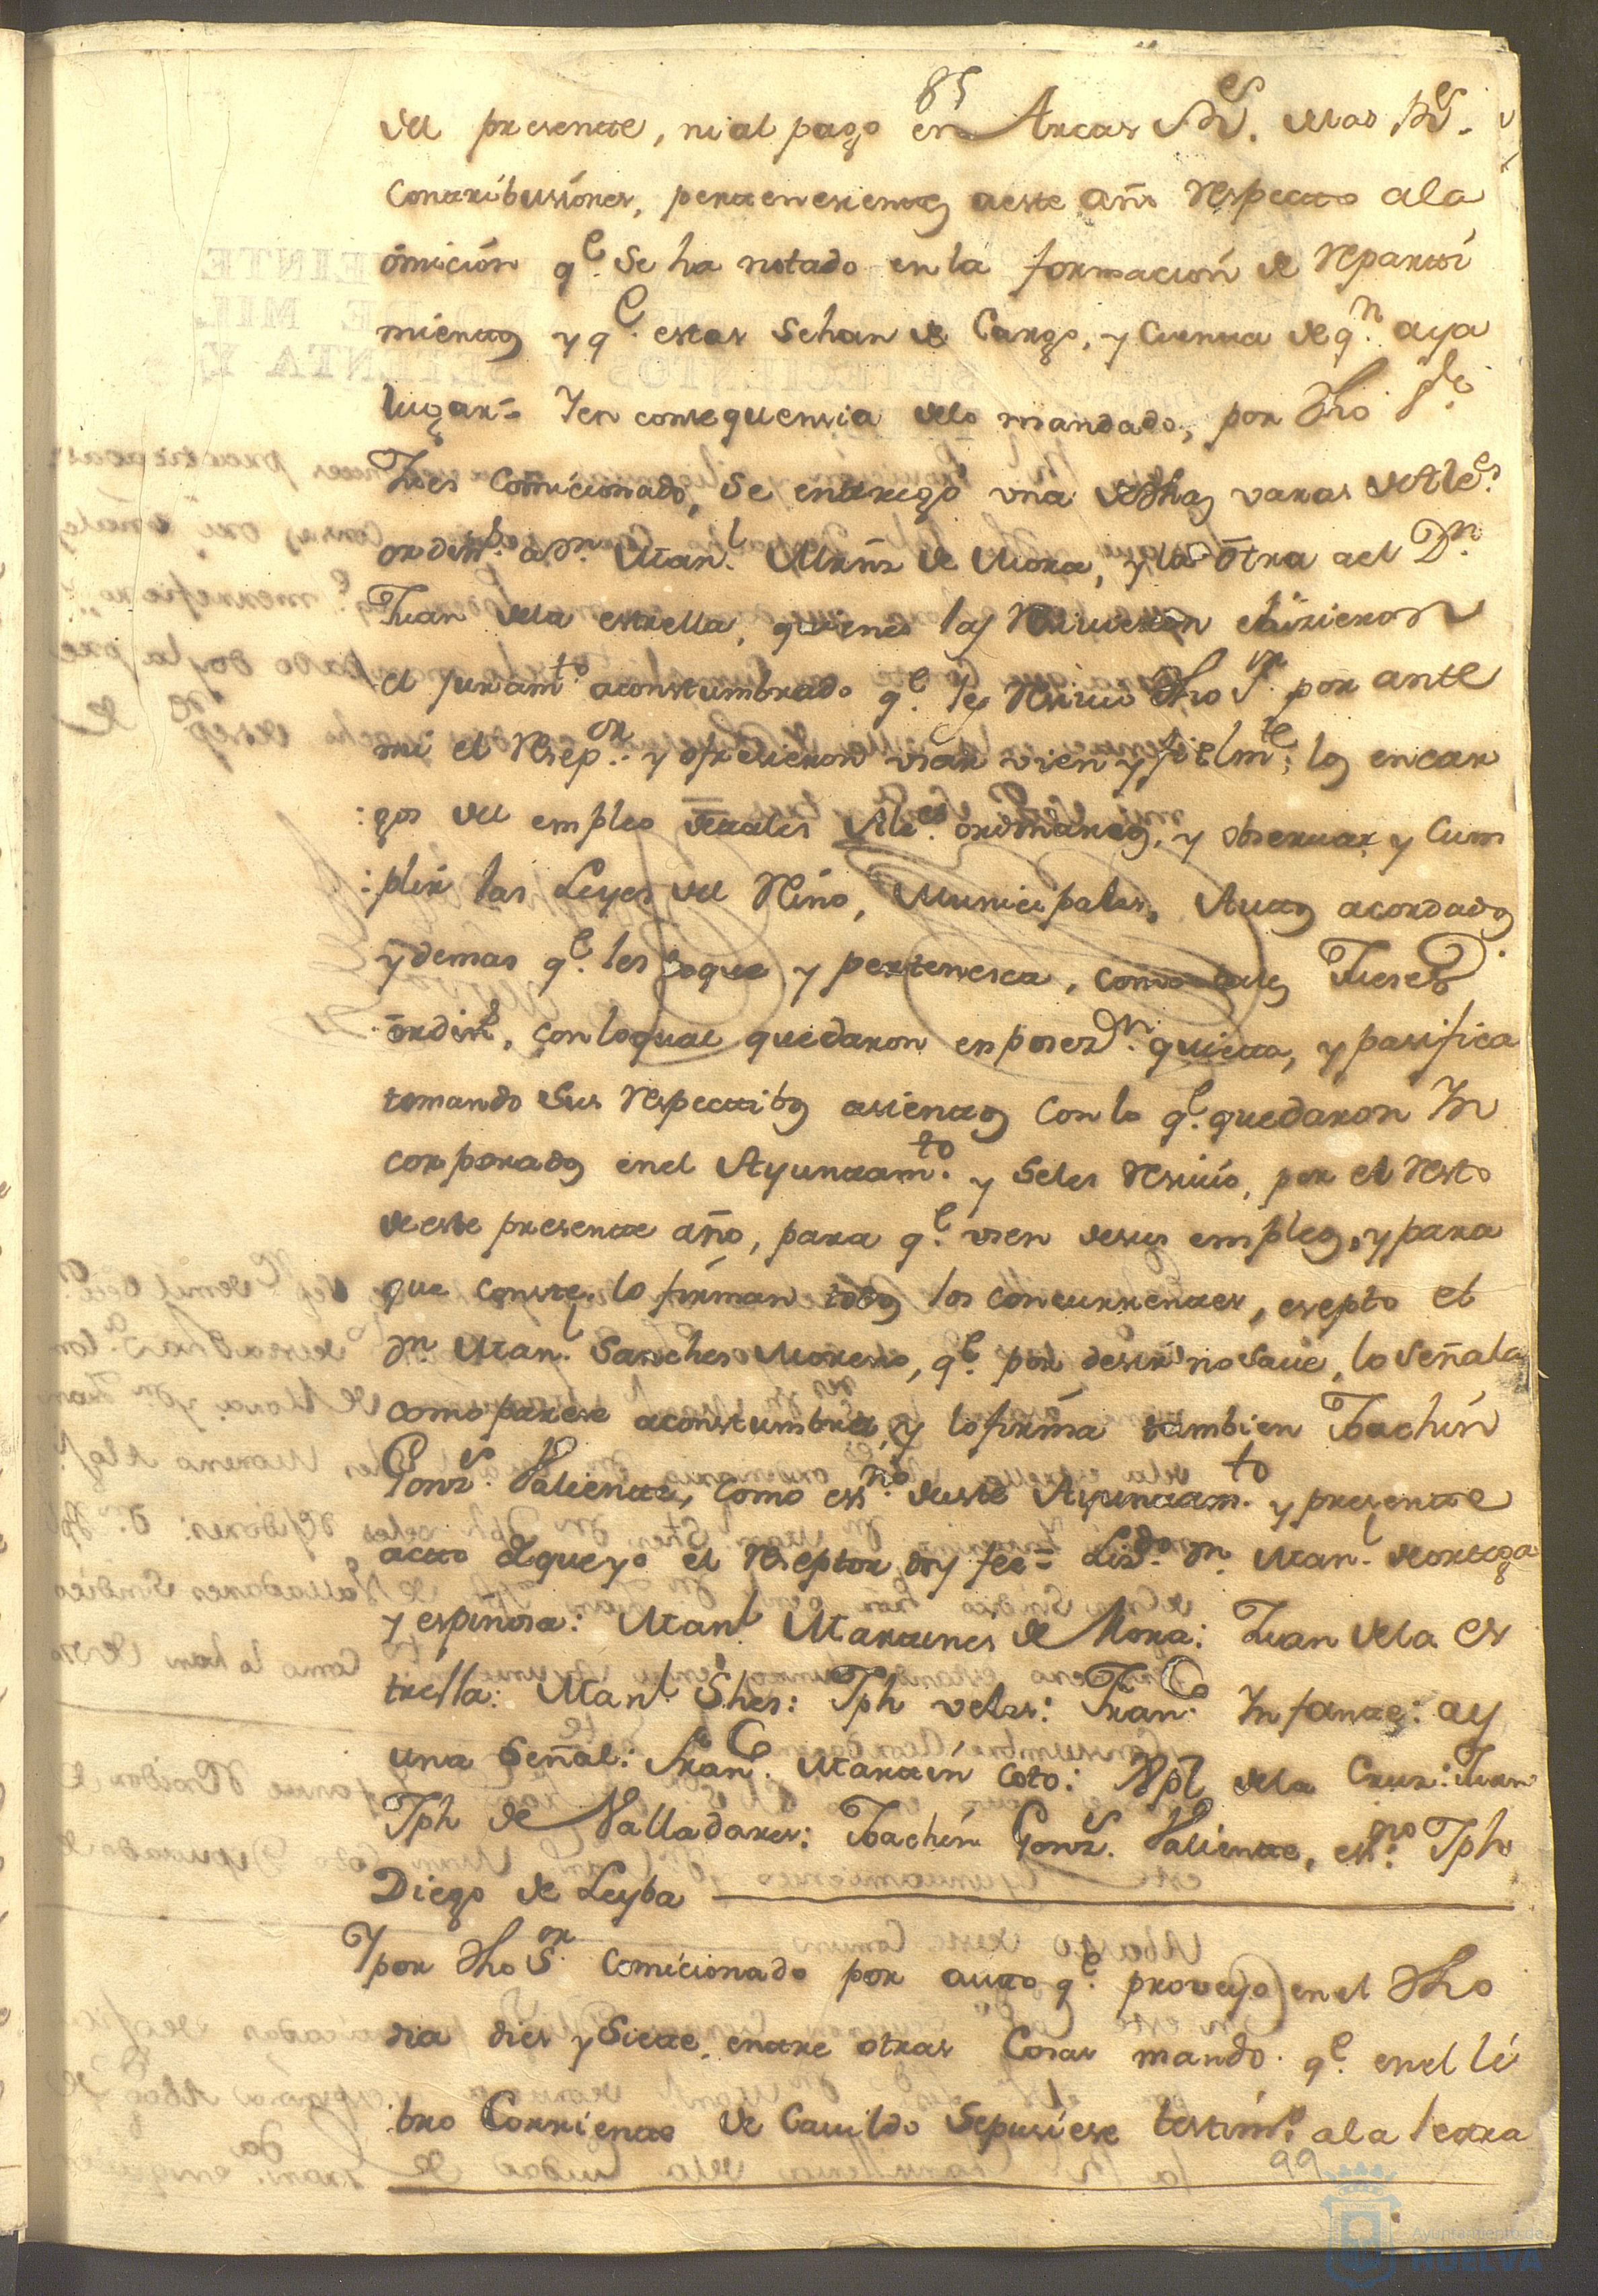 85
del presente, ni al pago en Arcas Rs. delas Rs.
Contribusiones, pertenesientes aeste año respecto ala
omición qe. Se ha notado en la formación de reparti
mientos y qe. estos sehan de Cargo, y Cuenta de qn. aya
lugar= Yen consequensia delo mandado, por dho Sor.
Jues Comicionado, se entregó una de dhas varas de Ales.
ordins. a Dn. Manl. Mrnz de Mora, y la otra ael Dn.
Juan dela estrella, quienes las resiuieron ehizieron
el juramto. aconstumbrado qe. les resiuio dho Sor. por ante
mi el resepor. y ofresieron usar vien y fielmte. los encar
:gos del empleo de tales Ales. ordinarios, y obseruar y Cum
:plir las Leyes del Reino, Municipales, Autos acordados
y demas qe. les toque y pertenesca, como tales Jueses
ordins, con loqual quedaron en poseon. quieta, y pasifica
tomando Sus respectibos asientos con lo qe. quedaron In
corporados enel Ayuntamto. y Seles resiuio, por el resto
deeste presente año, para qe. usen desus empleos, y para
que conste lo firman todos los concurrentes, esepto el
Dn Manl. Sanches Moreno, qe. por desir no saue, lo señala
como parese aconstumbra, y lo firma tambien Joachin
Gonzs. Valiente, Como essno. deeste Ayuntamto. y presente
acto de que yo el Reseptor doy fee= Lizdo. Dn. Manl. de ortega
y espinosa: Manl Martines de Mora: Juan dela es
trella: Manl. Shes: Jph veles: Franco. Infante: ay
una Señal: Franco. Martin Coto: Xpl dela Cruz: Juan
Jph de Valladares: Joachin Gonzs. Valiente, essno: Jph
Diego de Leyba
Y por dho Sor. Comicionado por auto qe. proveyo en el dho
dia dies y Siete, entre otras Cosas mando qe. enel li
bro Corriente de Cauildo Sepusiese testimo. ala letra
99
Ayuntamiento de
HUELVA